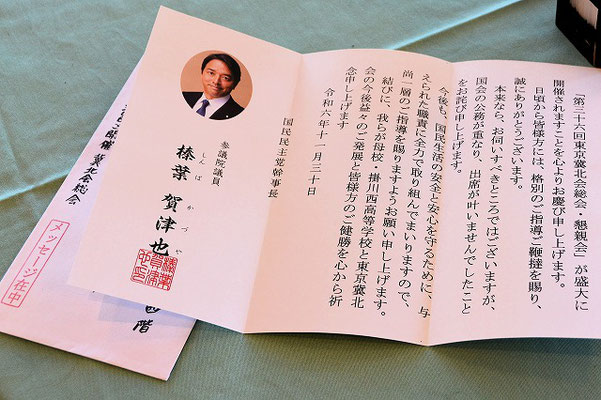 「第三十六回東京冀北会総会・懇親会」が盛大に
開催されますことを心よりお慶び申し上げます。
日頃から皆様方には、格別のご指導ご鞭撻を賜り、
誠にありがとうございます。
本来なら、お伺いすべきところではございますが、
国会の公務が重なり、出席が叶いませんでしたこと
をお詫び申し上げます。
今後も、国民生活の安全と安心を守るために、与
えられた職責に全力で取り組んでまいりますので、
尚一層のご指導を賜りますようお願い申し上げます。
結びに、我らが母校・掛川西高等学校と東京冀北
会の今後益々のご発展と皆様方のご健勝を心から祈
念申し上げます
令和六年十一月三十日
国民民主党幹事長
参議院議員
榛葉 賀津也
しんば かづや
開催 冀北会総会
メッセージ在中
階